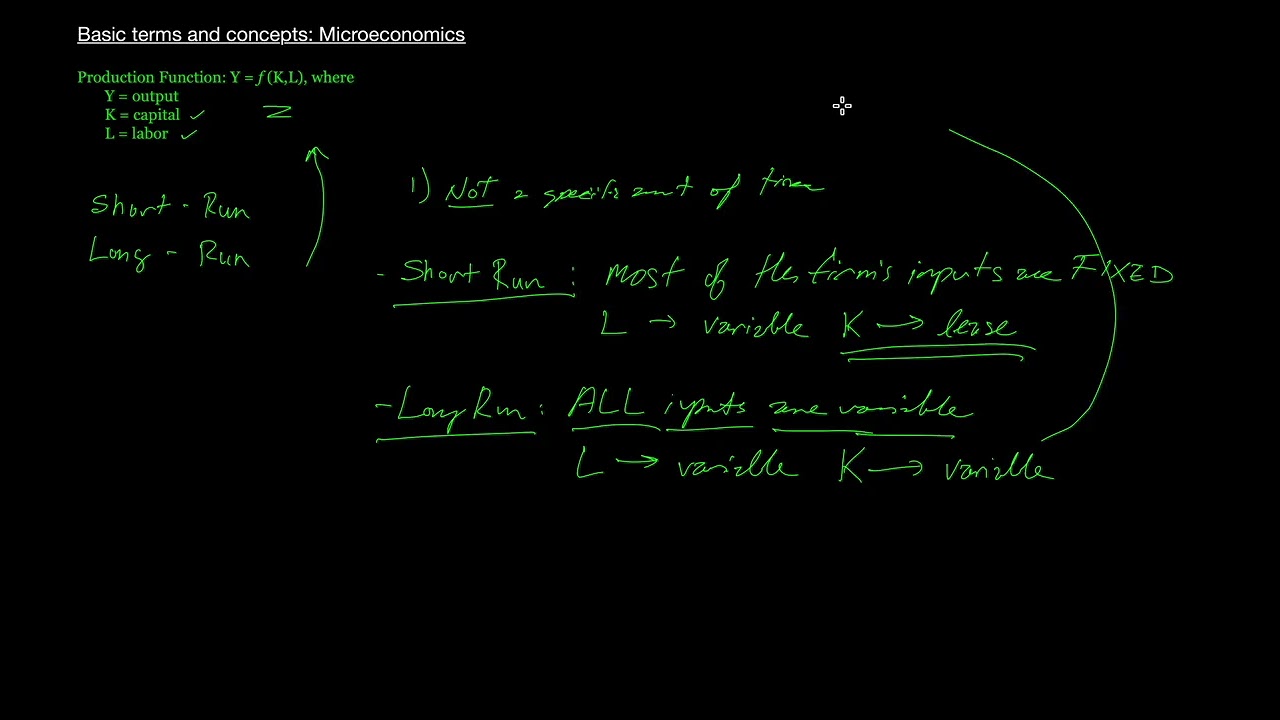 Basic terms and concepts: Microeconomics
Production Function: Y = f (K,L), where
Y = output
K = capital ✓
L = labor ✓
Z
Short - Run
Long - Run
1) NOT a specific amt of time
- Short Run: most of the firm's inputs are FIXED
L → variable K → lease
- Long Run: ALL inputs are variable
L → variable K → variable